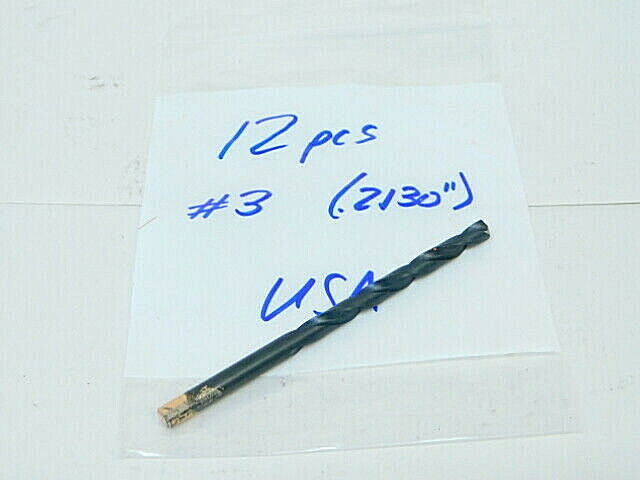 12 pcs
#3 (.2130")
USA